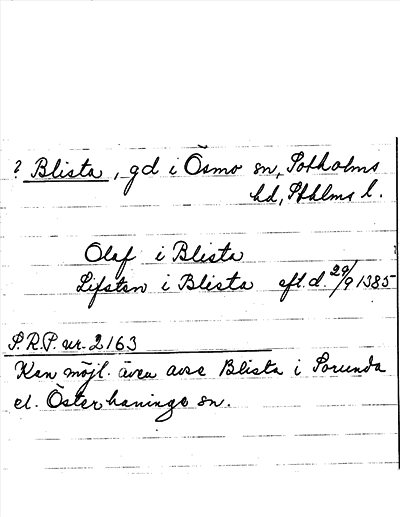 ? Blista, gd i Ösmo sn, Sotholms
hd, Sthlms l.
Olaf i Blista
Lifsten i Blista eft. d. 29/9 1385
S.R.P. nr. 2163
Kan möjl. även avse Blista i Sorunda
el. Österhaninge sn.